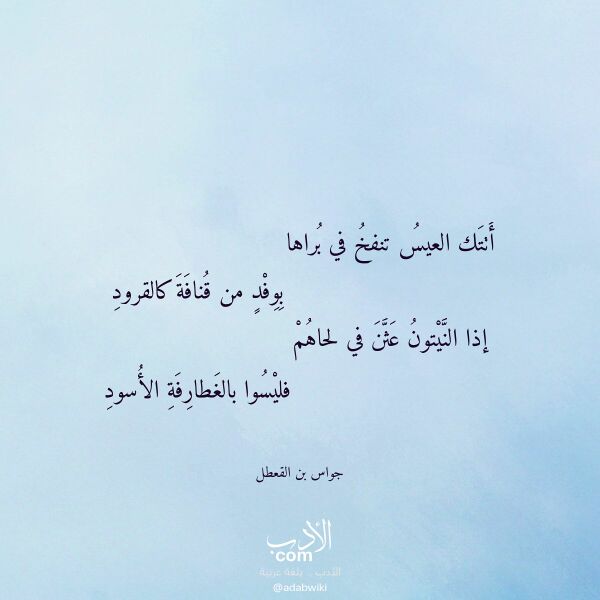 أَتَتَك العيسُ تنفخُ في بُراها
بِوِفْدٍ من قُنافَةَ كالقرودِ
إذا النَّيْتونُ عَثَّنَ في لحاهُمْ
فليْسُوا بالغَطارِفَةِ الأُسودِ
جواس بن القعطل
الأدب
com
الأدب .. بلغة عربية
@adabwiki